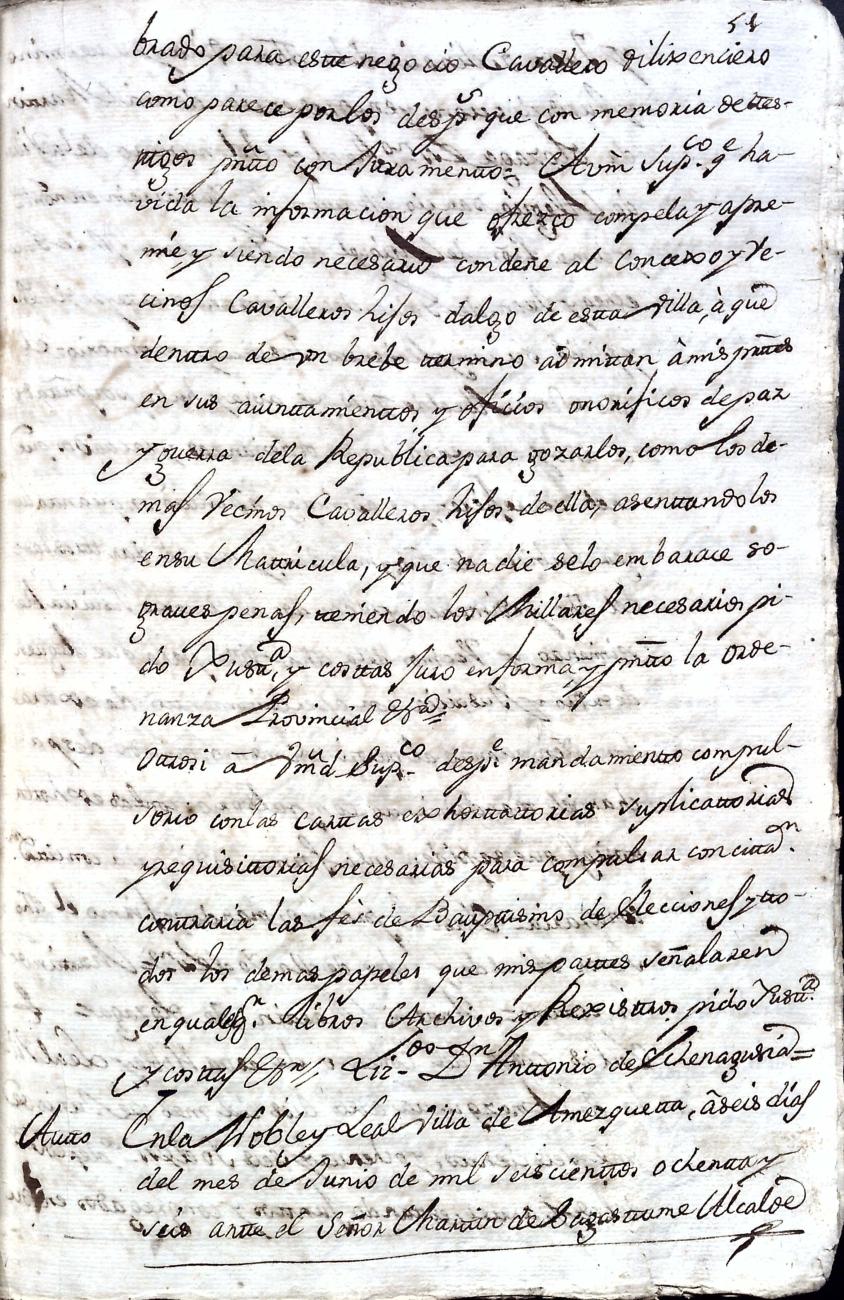 brado para este negocio Cavallero dilixenciero
como parece por los desp.s que con memoria de tes-
tigos pntto con Juramentto= A vm sup.co q.e ha-
vida la informacion que ofrezco compela y apre-
mie y siendo necesario condene al Concexo y Ve-
cinos Cavalleros hijos dalgo de estta villa, à que
denttro de vn brebe ttermino admittan à mis parttes
en sus aiunttamienttos y oficios onorificos de paz
y guerra de la Republica para gozarlos, como los de-
mas Vecinos Cavalleros hijos de ella, asenttandolos
en su Mattricula, y que nadie se lo embarace so-
graves penas, teniendo los Millares necesarios pi-
do Justt.a, y costtas Juro en forma y pntto la orde-
nanza Provincial &ra=
Ottrosi à Vmd Sup.co desp.e mandamientto compul-
sorio con las carttas exhorttattorias suplicattorias
y requisittorias necesarias para compulsar con citta.n
conttraria las fès de Baupttismo de Elecciones y tto-
dos los demas papeles que mis parttes señalaren
en qualesq.r libros Archivos y Rexisttros pido Justt.a
y costtas &ra// Liz.do D.n Anttonio de Echenagusia=
Autto En la Noble y Leal Villa de Amezquetta, à seis dias
del mes de Junio de mil seiscienttos ochentta y
seis antte el Señor Marttin de Bazastume Alcalde